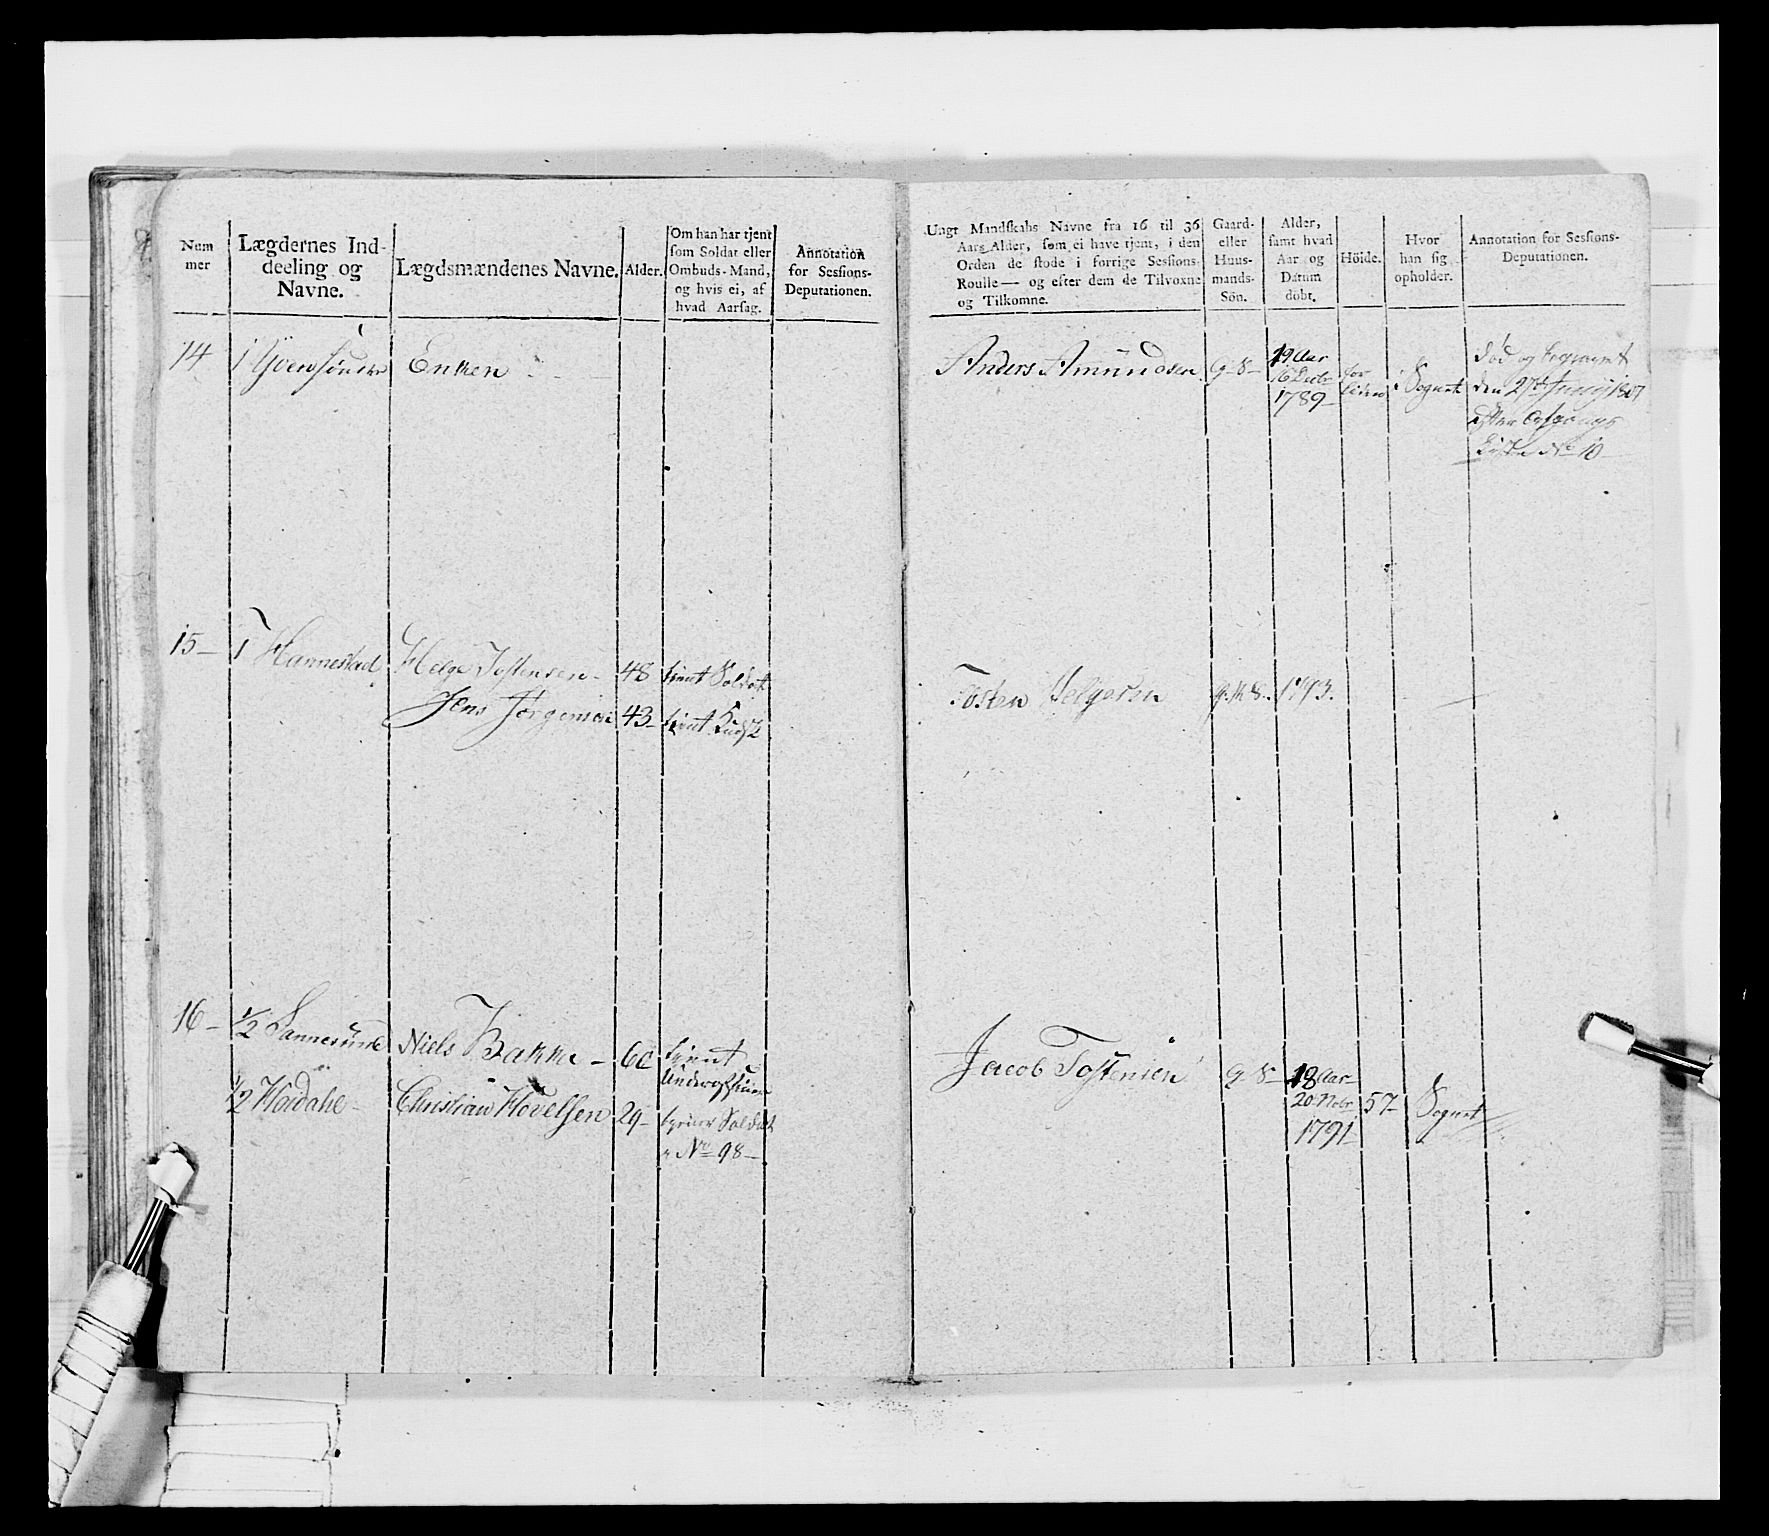 Num
mer
Lægdernes Ind-
deeling og
Navne.
Lægdsmændenes Navne.
Alder.
Om han har tjent
som Soldat eller
Ombuds-Mand,
og hvis ei, af
hvad Aarsag.
Annotation
for Sessions-
Deputationen.
14
1
Enken
15
1 Hannestad
Helge Tostensen 48 tient Soldat
Jens Jørgensen 43 tient
16
1/2 Sannerund
Niels Bakke 60 tient
Underofficeer
1/2 Hoidahl
Christian Hovelsen 29
Soldat
No 98
Ungt Mandskabs Navne fra 16 til 36
Aars Alder, som ei have tjent, i den
Orden de stode i forrige Sessions-
Roulle — og efter dem de Tilvoxne
og Tilkomne.
Gaard-
eller
Huus-
mands-
Sön.
Alder,
samt hvad
Aar og
Datum
döbt.
Höide.
Hvor
han sig
opholder.
Annotation for Sessions-
Deputationen.
Anders Amundsen g S 19 Aar
16 Decbr
1789
i Sognet
død og begravet
den 27de 1807
efter
Liste No 10
Tosten Helgesen g. M S. 1793.
Jacob Tostensen g S 18 Aar
20 Nobr
1791
57
Sognet